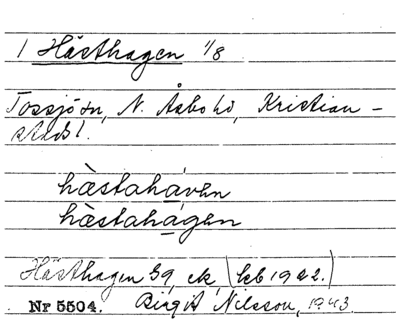 1 Hästhagen 1/8
Tossjön, N. Åsbo hd, Kristian-
stads l.
hàestaháven
hàestahágen
Hästhagen 39, ek, (kb 1922.)
Nr 5504. Birgit Nilsson, 1943.